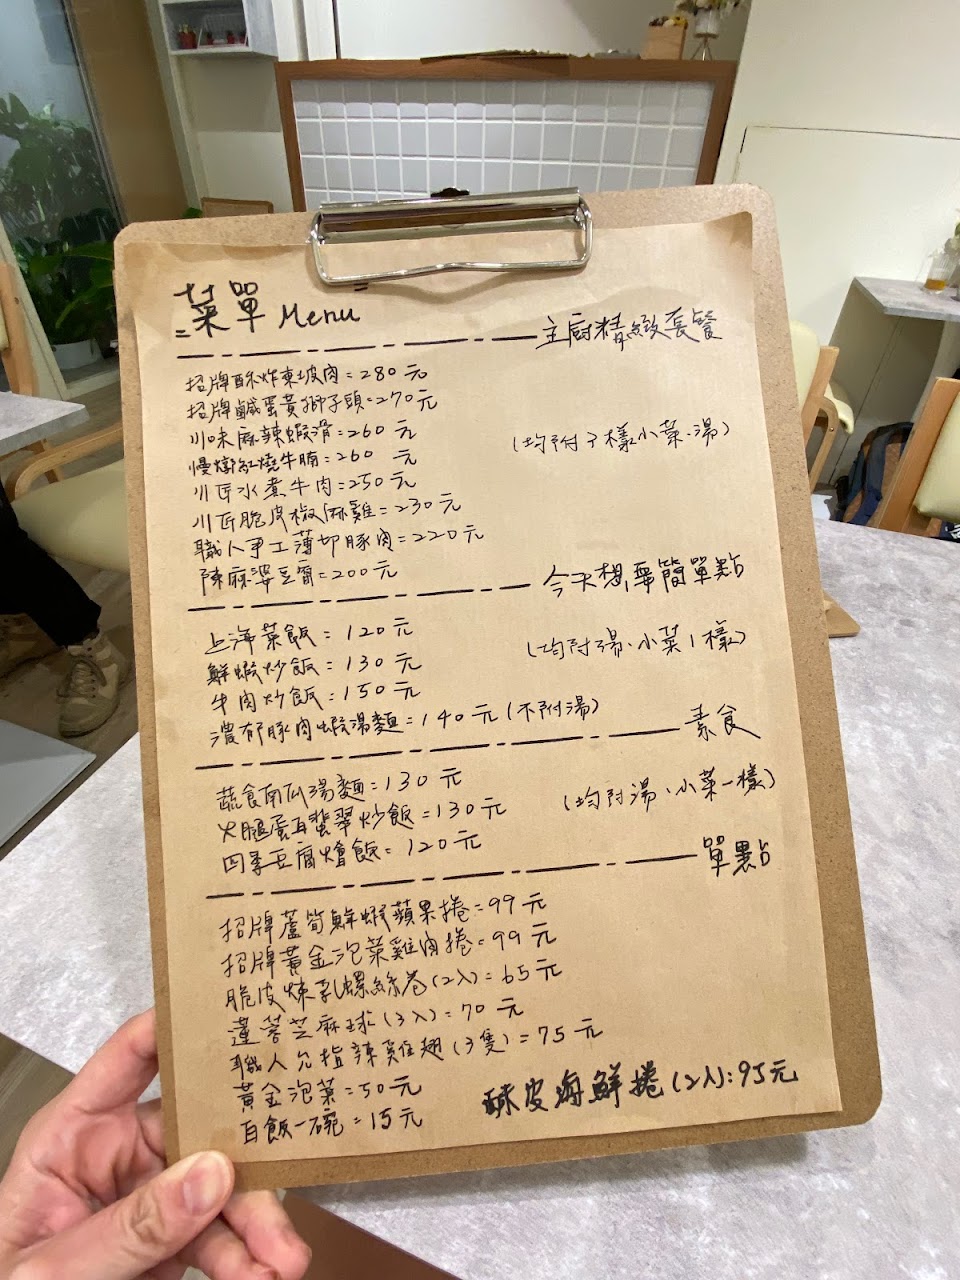 菜單 Menu
主廚精緻套餐
招牌酥炸東坡肉=280元
招牌鹹蛋黃獅子頭=270元
川味麻辣蝦滑=260元
(均附3樣小菜、湯)
慢燉紅燒牛腩=260元
川匠水煮牛肉=250元
川匠脆皮椒麻雞=230元
職人手工薄切豚肉=220元
陳麻婆豆腐=200元
今天想要簡單點
上海菜飯=120元
鮮蝦炒飯=130元
(均附湯、小菜1樣)
牛肉炒飯=150元
濃郁豚肉蝦湯麵=140元(不附湯)
素食
蔬食南瓜湯麵=130元
火腿蛋百翡翠炒飯=130元
(均附湯、小菜一樣)
四季豆腐燴飯=120元
單點
招牌蘆筍鮮蝦蘋果捲=99元
招牌黃金泡菜雞肉捲=99元
脆皮煉乳螺絲卷(2入)=65元
蓮蓉芝麻球(3入)=70元
職人允指辣雞翅(3隻)=75元
黃金泡菜=50元
酥皮海鮮捲(2入):95元
白飯一碗=15元